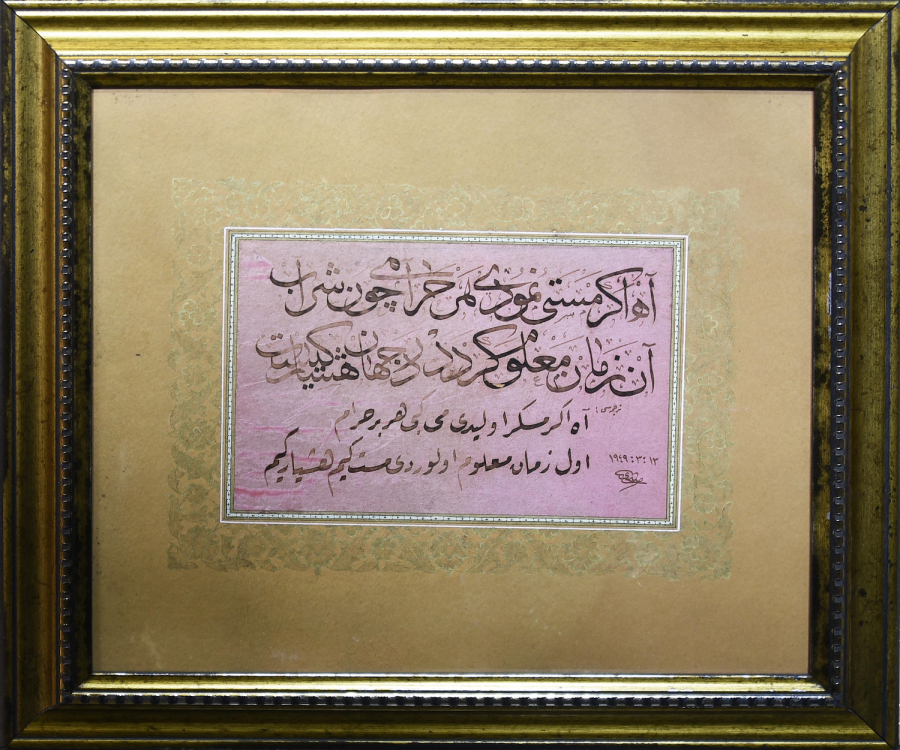 آه اگر مستی نمودی هر حرامی چون شراب
آن زمان معلوم گردد در جهان هشیار کیست
ترجمه سی :
آه اکر مسکر اولیدی می کبی هر بر حرام
اول زمان معلوم اولوردی مست کیم هشیار کیم
١٩٤٩ : ٣ : ١٣